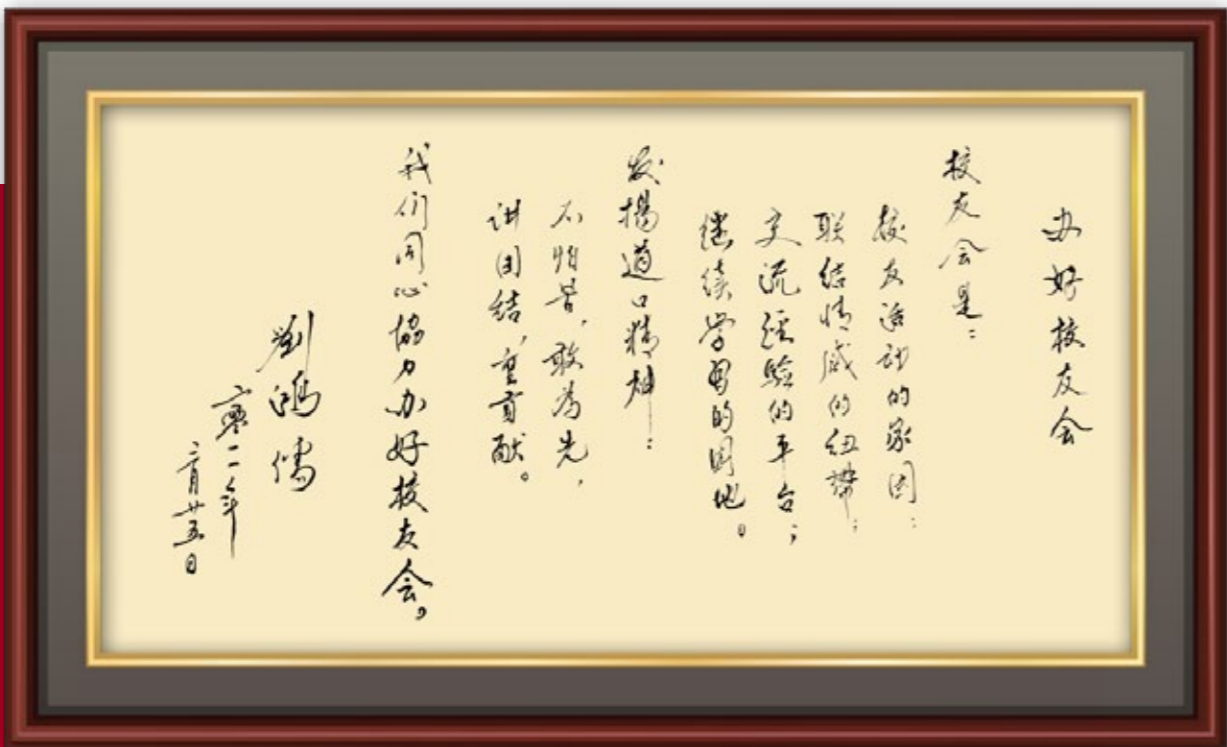 办好校友会
校友会是：
校友活动的家园；
联结情感的纽带；
交流经验的平台；
继续学习的园地。
发揚道口精神：
不怕苦，敢为先，
讲团结，重贡献。
我们同心協力办好校友会。
劉鴻儒
二〇一二年
二月廿五日